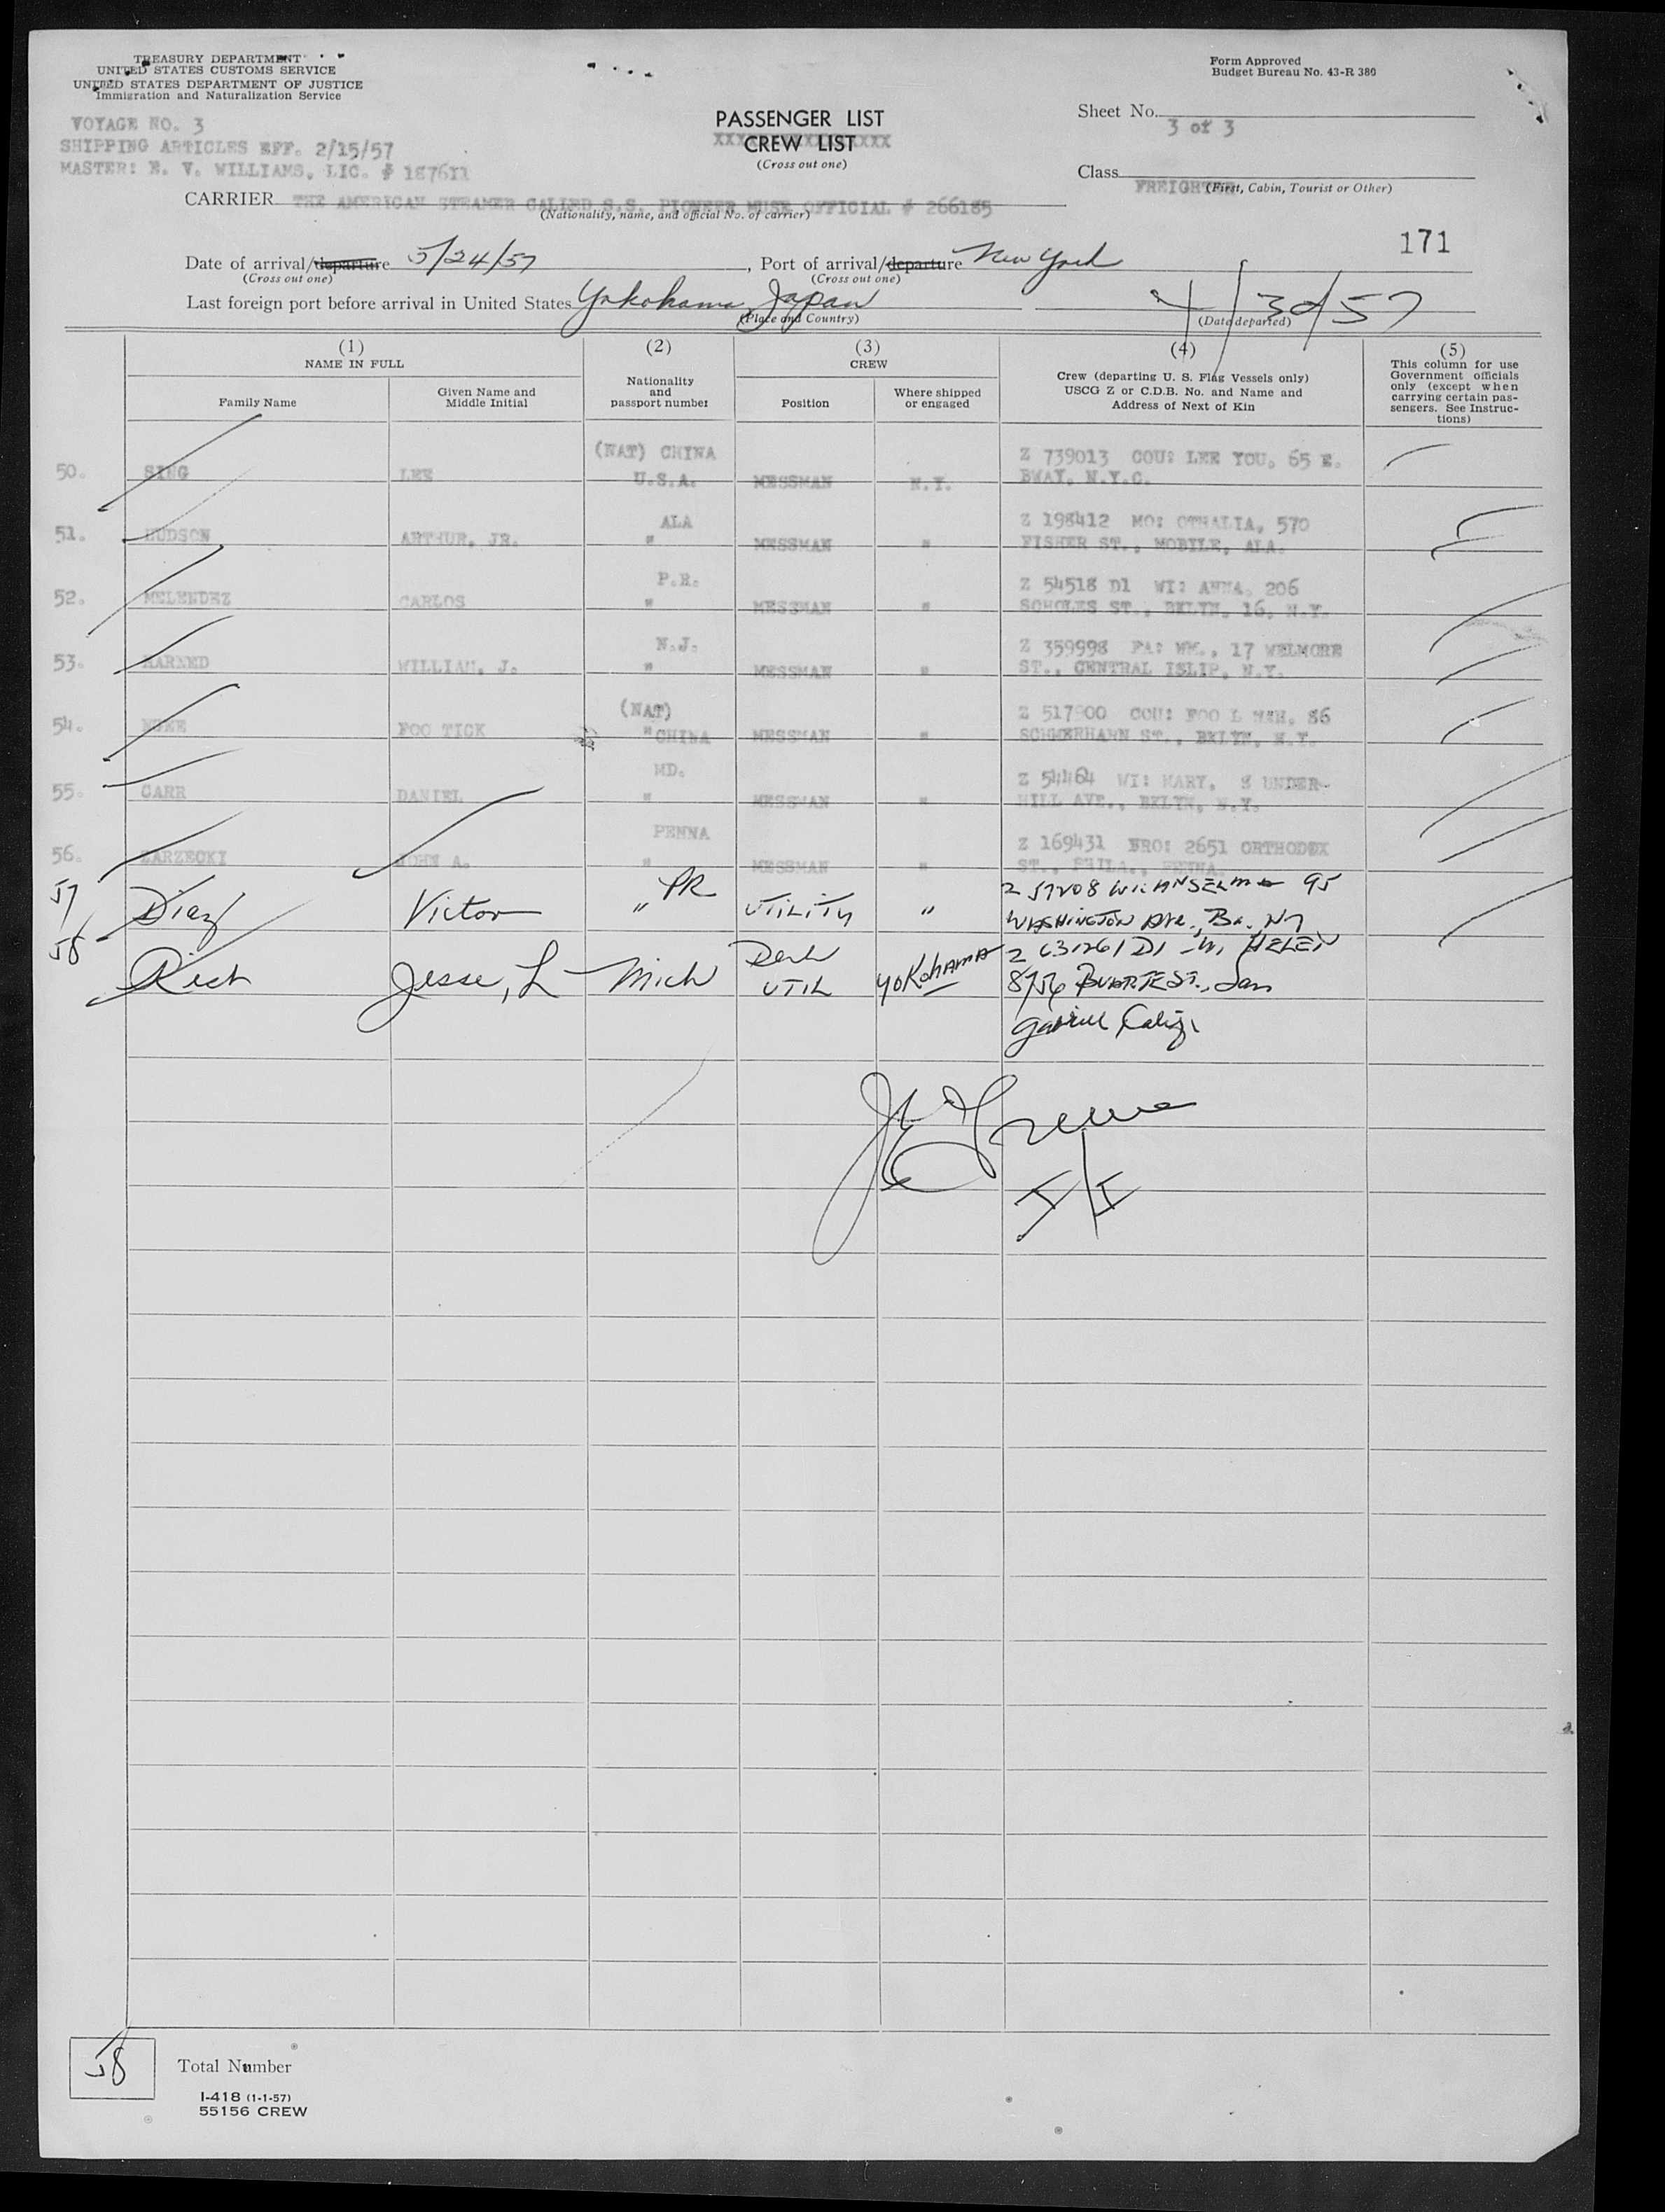 TREASURY DEPARTMENT
UNITED STATES CUSTOMS SERVICE
UNITED STATES DEPARTMENT OF JUSTICE
Immigration and Naturalization Service
Form Approved
Budget Bureau No. 43-R 380
VOYAGE NO. 3
SHIPPING ARTICLES EFF. 2/15/57
MASTER: E. V. WILLIAMS, LIC. # 187611
PASSENGER LIST
CREW LIST
(Cross out one)
Sheet No. 3 of 3
Class FREIGHTER
(First, Cabin, Tourist or Other)
CARRIER THE AMERICAN STEAMER CALLED S.S. PIONEER MUSE OFFICIAL # 266185
(Nationality, name, and official No. of carrier)
171
Date of arrival/departure 5/24/57, Port of arrival/departure New York
(Cross out one) (Cross out one)
Last foreign port before arrival in United States Yokohama, Japan 4/30/57
(Place and Country) (Date departed)
(1) NAME IN FULL
Family Name
Given Name and Middle Initial
(2)
Nationality and passport number
(3) CREW
Position
Where shipped or engaged
(4)
Crew (departing U. S. Flag Vessels only)
USCG Z or C.D.B. No. and Name and
Address of Next of Kin
(5)
This column for use
Government officials
only (except when
carrying certain pas-
sengers. See Instruc-
tions)
(NAT) CHINA Z 739013 COU: LEE YOU, 65 E.
50. SING LEE U.S.A. MESSMAN N.Y. BWAY, N.Y.C.
ALA Z 198412 MO: OTHALIA, 570
51. HUDSON ARTHUR, JR. " MESSMAN " FISHER ST., MOBILE, ALA.
P.R. Z 54518 D1 WI: ANNA, 206
52. MELENDEZ CARLOS " MESSMAN " SCHOLES ST., BKLYN, 16, N.Y.
N.J. Z 359998 FA: WM., 17 WELMORE
53. HARNED WILLIAM, J. " MESSMAN " ST., CENTRAL ISLIP, N.Y.
(NAT) Z 517900 COU: FOO 86
54. FOO TICK " CHINA MESSMAN " SCHMERHARN ST., BKLYN, N.Y.
MD. Z 54464 WI: MARY, 8 UNDER-
55. CARR DANIEL " MESSMAN " HILL AVE., BKLYN, N.Y.
PENNA Z 169431 BRO: 2651 ORTHODOX
56. ZARZECKI JOHN A. " MESSMAN " ST., PHILA., PENNA.
57 Diaz Victor " PR UTILITY " Z 57208 WI: ANSELMA 95
WASHINGTON AVE., NY
58 Rich Jesse, L Mich Deck UTIL YOKOHAMA HELEN
ST., San
Gabriel Calif.
I/I
58 Total Number
I-418 (1-1-57)
55156 CREW